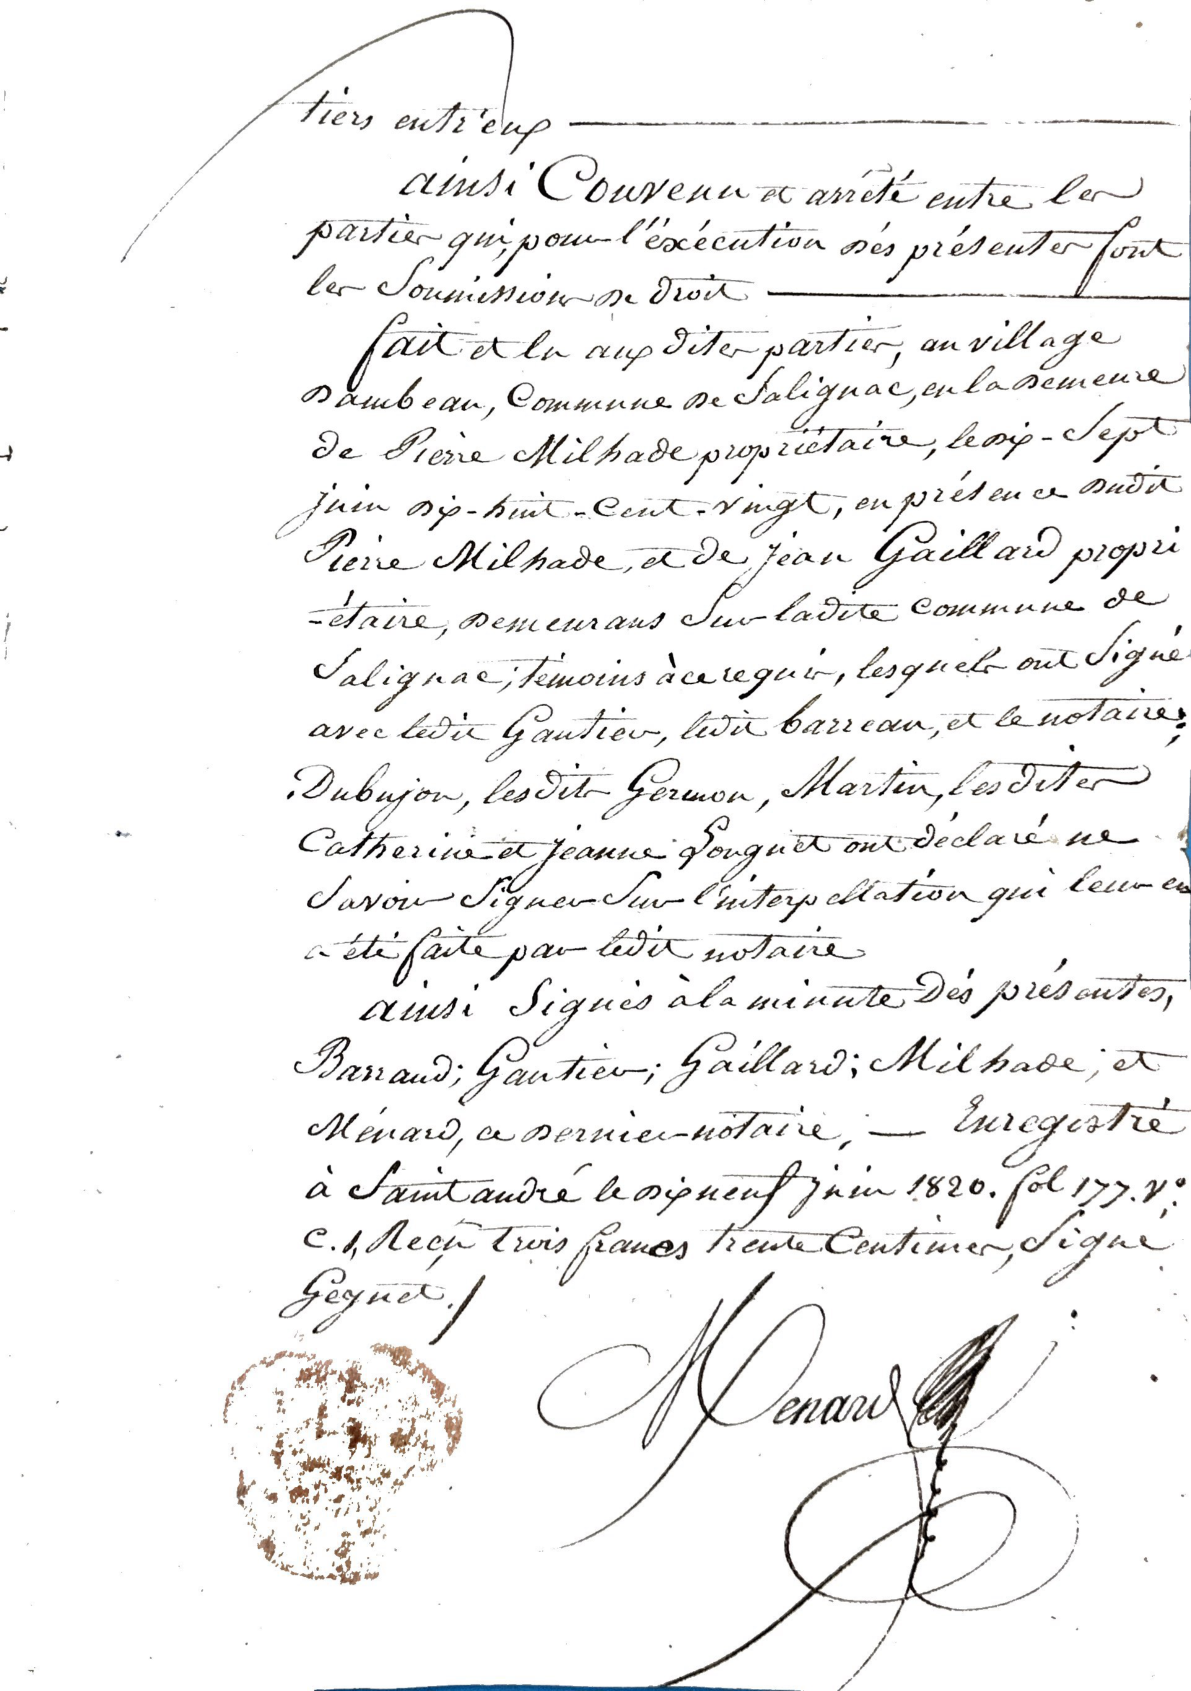 tiers entr'eux
ainsi Convenu et arrêté entre les
parties qui, pour l'éxécution dés présentes font
les Soumissions de droit
fait et lu aux dites parties, au village
Dambeau, Commune de Salignac, en la demeure
de Piérre Milhade propriétaire, le dix-Sept
juin dix-huit-Cent-vingt, en présence dudit
Piérre Milhade, et de jean Gaillard propri
-étaire, demeurans Sur ladite Commune de
Salignac, témoins à ce requis, lesquels ont Signé
avec ledit Gautier, ledit barreau, et le notaire;
Dubujon, lesdits Germon, Martin, les dites
Catherine et jeanne Fouguet ont déclaré ne
Savoir Signer Sur l'interpellation qui leur en
a été faite par ledit notaire
ainsi Signés à la minute Dés présentes,
Barraud; Gautier; Gaillard; Milhade; et
Ménard, ce dernier notaire, — Enregistré
à Saint andré le dix neuf juin 1820. fol 177. v°.
c. 1, Reçu trois francs trente Centimes, Signé
Geynet./
Menard